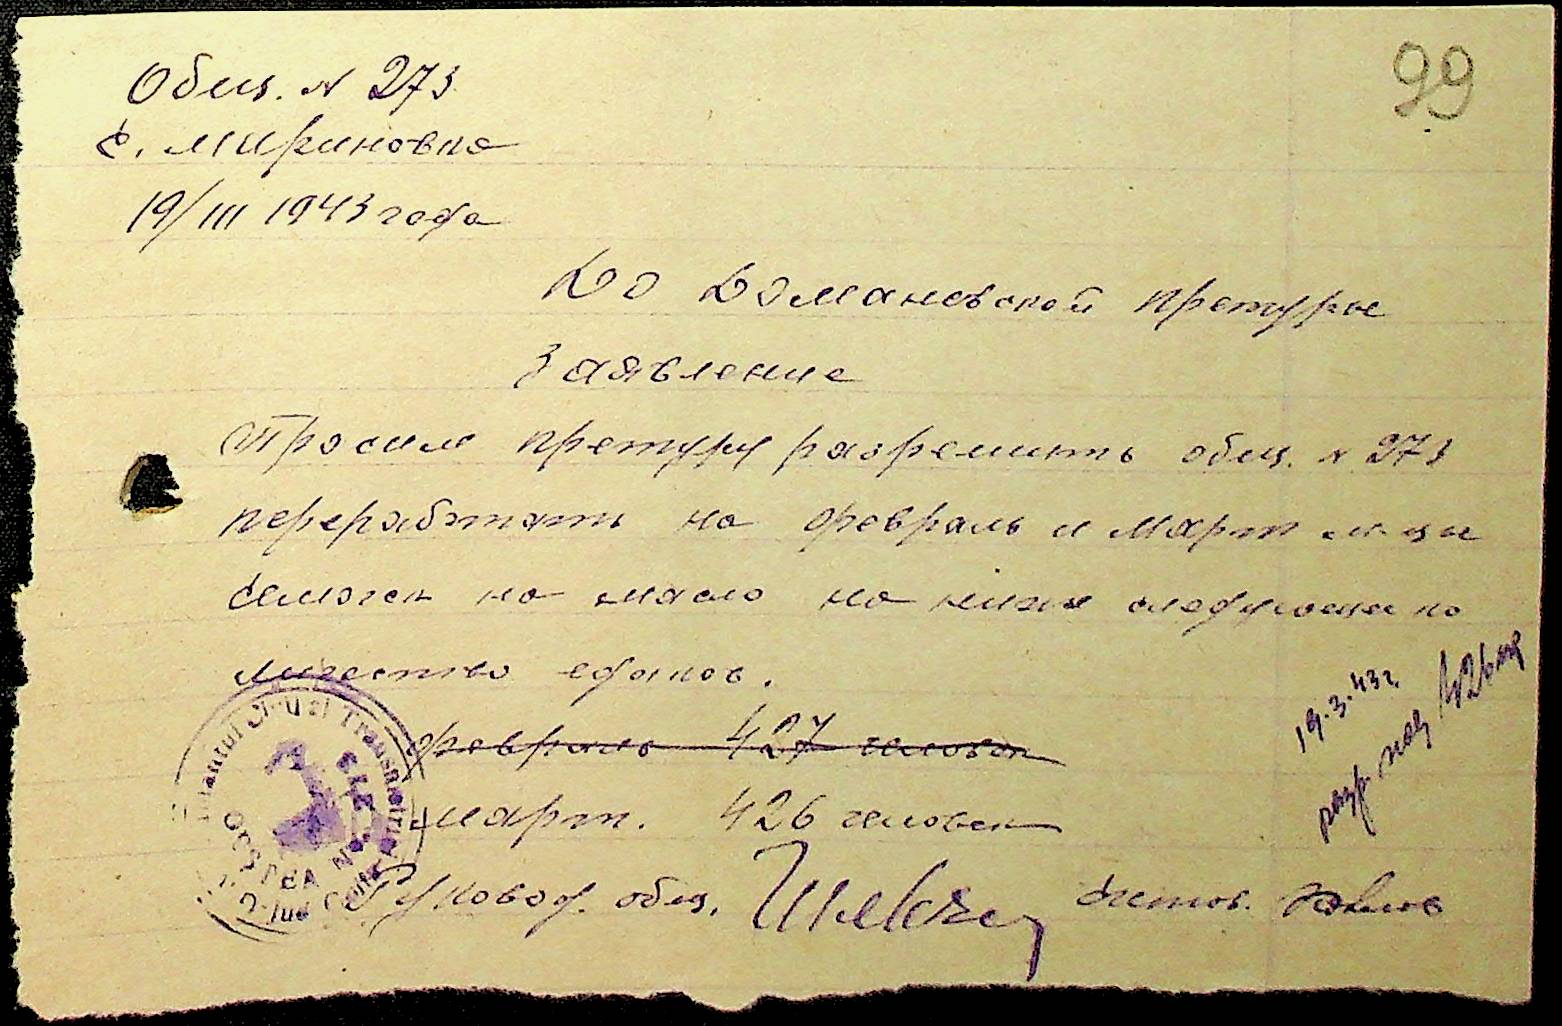 99
Общ. N 273
с. Мариновка
19/III 1943 года
До Домановской претуры
Заявление
Просим претуру разрешить общ. N 273
переработать на февраль и март м-цы
семечек на масло на ниже следующее ко
личество едоков.
февраль 427 человек
март. 426 человек
Руковод. общ. Счетов.
19.3.43 г.
разр. на
OBȘTEA No. 273